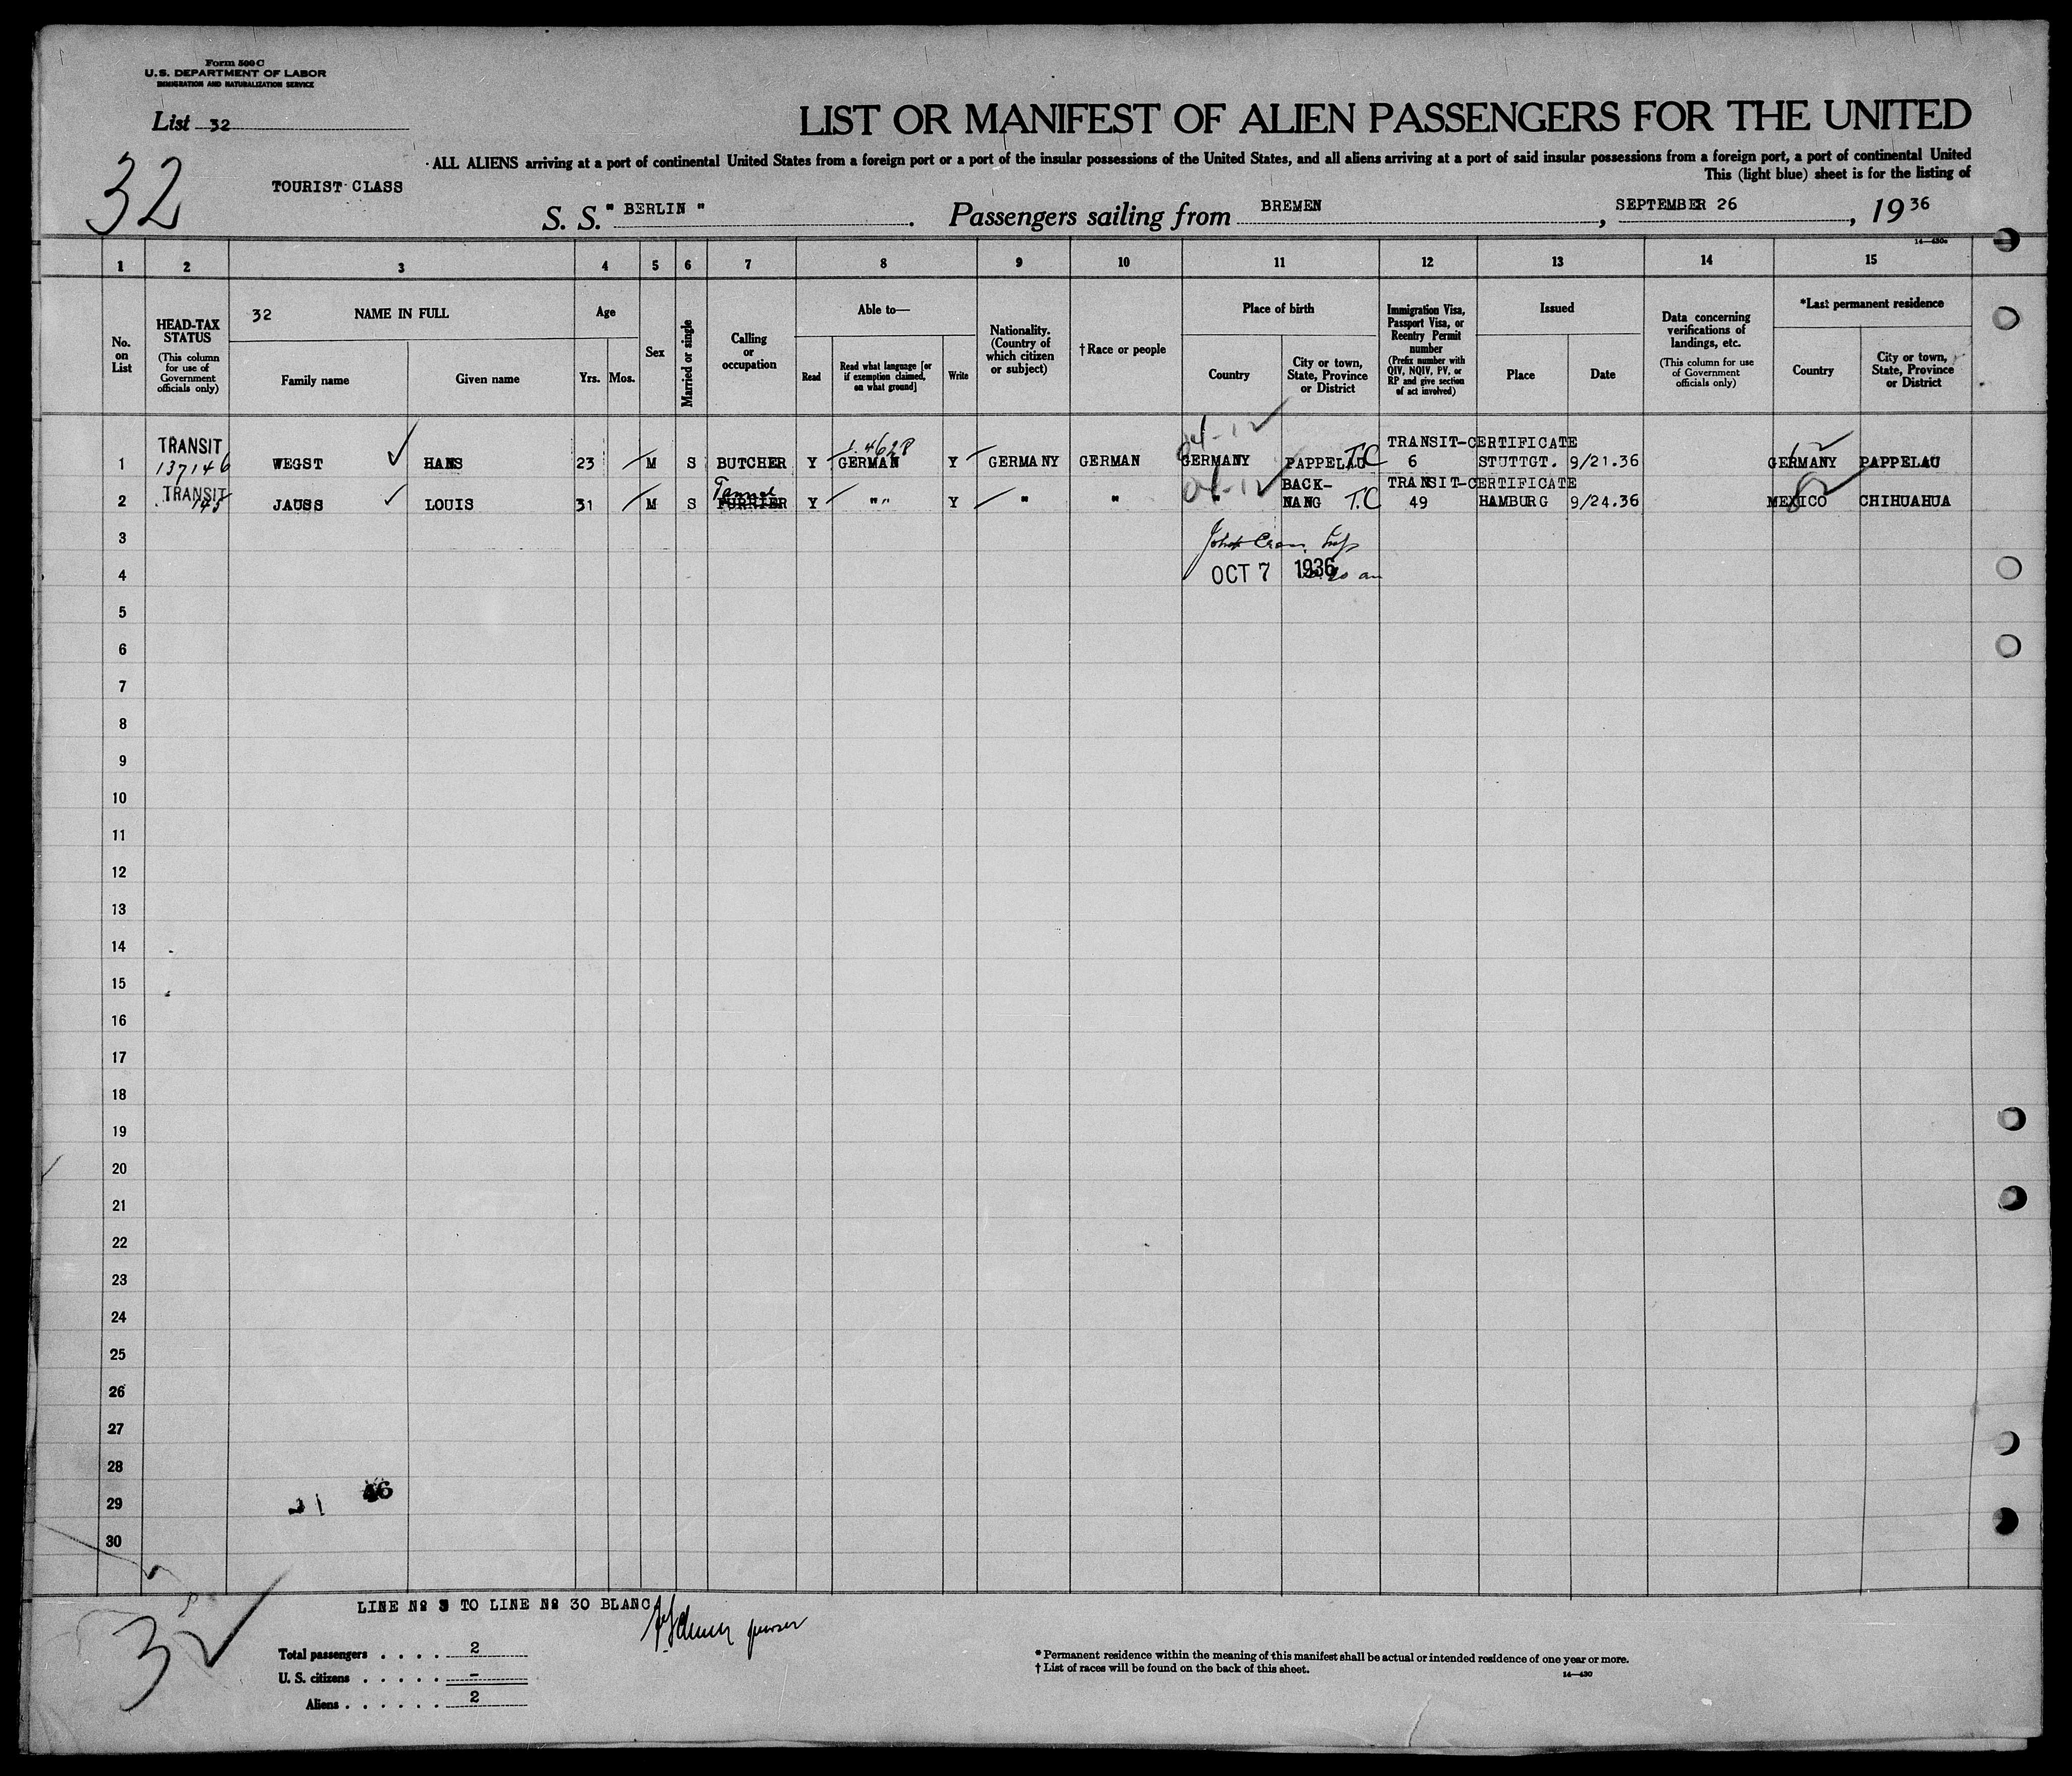 Form 500 C
U.S. DEPARTMENT OF LABOR
IMMIGRATION AND NATURALIZATION SERVICE
List 32
32
LIST OR MANIFEST OF ALIEN PASSENGERS FOR THE UNITED
ALL ALIENS arriving at a port of continental United States from a foreign port or a port of the insular possessions of the United States, and all aliens arriving at a port of said insular possessions from a foreign port, a port of continental United
This (light blue) sheet is for the listing of
TOURIST CLASS
S. S. " BERLIN " . Passengers sailing from BREMEN , SEPTEMBER 26 , 19 36
14—430a
1 2 3 4 5 6 7 8 9 10 11 12 13 14 15
No. on List
HEAD-TAX STATUS (This column for use of Government officials only)
32 NAME IN FULL
Family name Given name
Age
Yrs. Mos.
Sex
Married or single
Calling or occupation
Able to—
Read
Read what language [or if exemption claimed, on what ground]
Write
Nationality. (Country of which citizen or subject)
†Race or people
Place of birth
Country
City or town, State, Province or District
Immigration Visa, Passport Visa, or Reentry Permit number (Prefix number with QIV, NQIV, PV, or RP and give section of act involved)
Issued
Place Date
Data concerning verifications of landings, etc. (This column for use of Government officials only)
*Last permanent residence
Country
City or town, State, Province or District
TRANSIT TRANSIT-CERTIFICATE
1 137146 WEGST HANS 23 M S BUTCHER Y GERMAN Y GERMANY GERMAN GERMANY PAPPELAU T.C 6 STUTTGT. 9/21.36 GERMANY PAPPELAU
TRANSIT Tanner BACK- TRANSIT-CERTIFICATE
2 145 JAUSS LOUIS 31 M S FURRIER Y " " Y " " " NANG T.C 49 HAMBURG 9/24.36 MEXICO CHIHUAHUA
3
4 OCT 7 1936
5
6
7
8
9
10
11
12
13
14
15
16
17
18
19
20
21
22
23
24
25
26
27
28
29
30
LINE No 3 TO LINE No 30 BLANC
purser
32
Total passengers . . . . 2
U. S. citizens . . . . . –
Aliens . . . . . . 2
* Permanent residence within the meaning of this manifest shall be actual or intended residence of one year or more.
† List of races will be found on the back of this sheet.
14—430